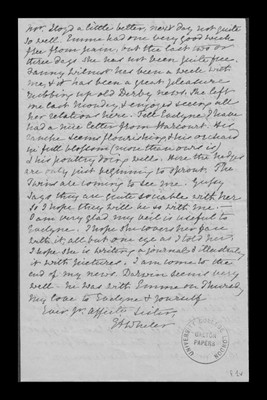 Mrs. Lloyd a little better, next day not quite
so well. Emma had one very good week
free from pain, but the last two or
three days she has not been quite free.
Fanny Wilmot has been a week with
me & it has been a great pleasure
rubbing up old Derby news. She left
me last Monday & enjoyed seeing all
her relations here. Tell Evelyne I have
had a nice letter from Harcourt. His
ranche seems flourishing & his orchard
in full blossom (more than ours is)
& his poultry doing well. Here the hedges
are only just beginning to sprout. The
Twins are coming to see me.
says they are quite sociable with her
so I hope they will be so with me.
I am very glad my veil is useful to
Evelyne. I hope she covers her face
with it all but one eye as I told her.
I hope she is writing a journal & illustrating
it with pictures. I am come to the
end of my news. Darwin seems very
well. He was with Emma on Thursday
My love to Evelyne & yourself
Ever Yr. affecte Sister,
S E Wheler
UNIVERSITY COLLEGE LONDON
GALTON PAPERS